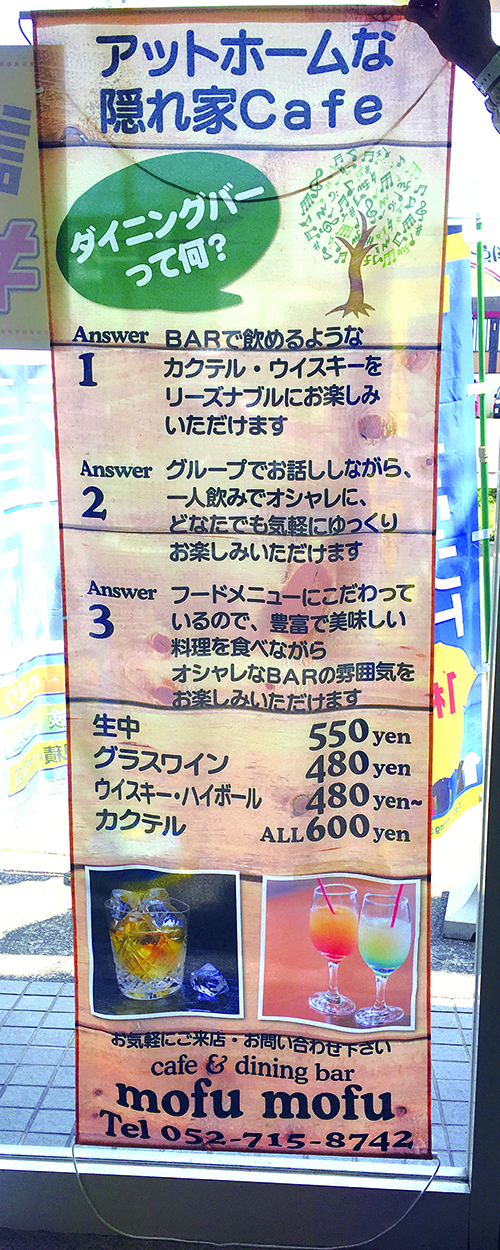 アットホームな
隠れ家Cafe
ダイニングバー
って何？
Answer 1
BARで飲めるような
カクテル・ウイスキーを
リーズナブルにお楽しみ
いただけます
Answer 2
グループでお話ししながら、
一人飲みでオシャレに、
どなたでも気軽にゆっくり
お楽しみいただけます
Answer 3
フードメニューにこだわって
いるので、豊富で美味しい
料理を食べながら
オシャレなBARの雰囲気を
お楽しみいただけます
生中 550yen
グラスワイン 480yen
ウイスキー・ハイボール 480yen~
カクテル ALL600yen
お気軽にご来店・お問い合わせ下さい
cafe & dining bar
mofu mofu
Tel 052-715-8742